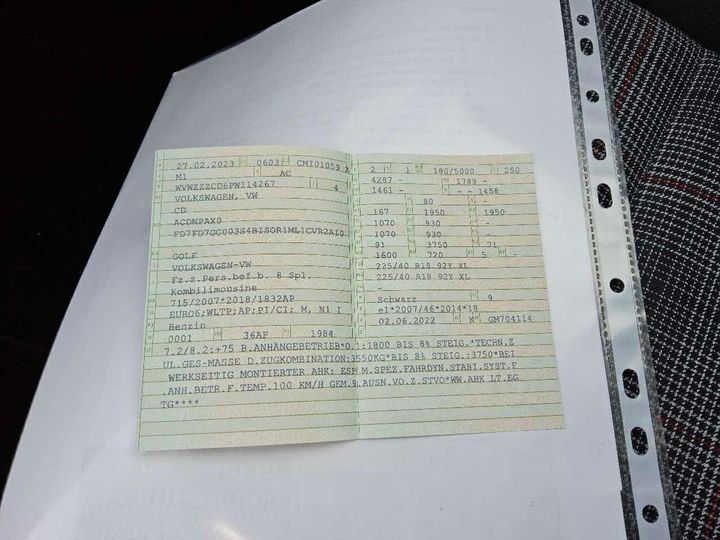 27.02.2023 0603 CMI01059 X
M1 AC
WVWZZZCD6PW114267 4
VOLKSWAGEN, VW
CD
ACDNPAX0
FD7FD7GC003S4BISOR1ML1CVR2AI0
GOLF
VOLKSWAGEN-VW
Fz.z.Pers.bef.b. 8 Spl.
Kombilimousine
715/2007*2018/1832AP
EURO6;WLTP;AP;PI/CI; M, N1 I
Benzin
0001 36AP 1984
2 1 180/5000 250
4287 - 1789 -
1461 - - - 1458
- 80 -
167 1950 1950
1070 930 -
1070 930 -
91 3750 71
1600 720 5 -
225/40 R18 92Y XL
225/40 R18 92Y XL
-
Schwarz 9
e1*2007/46*2014*18
02.06.2022 K GM704114
7.2/8.2:+75 B.ANHÄNGEBETRIEB*O.1:1800 BIS 8% STEIG.*TECHN.Z
UL.GES-MASSE D.ZUGKOMBINATION:3550KG*BIS 8% STEIG.:3750*BEI
WERKSEITIG MONTIERTER AHK: ESP M.SPEZ.FAHRDYN.STABI.SYST.F
.ANH.BETR.F.TEMP.100 KM/H GEM.9.AUSN.VO.Z.STVO*WW.AHK LT.EG
TG****